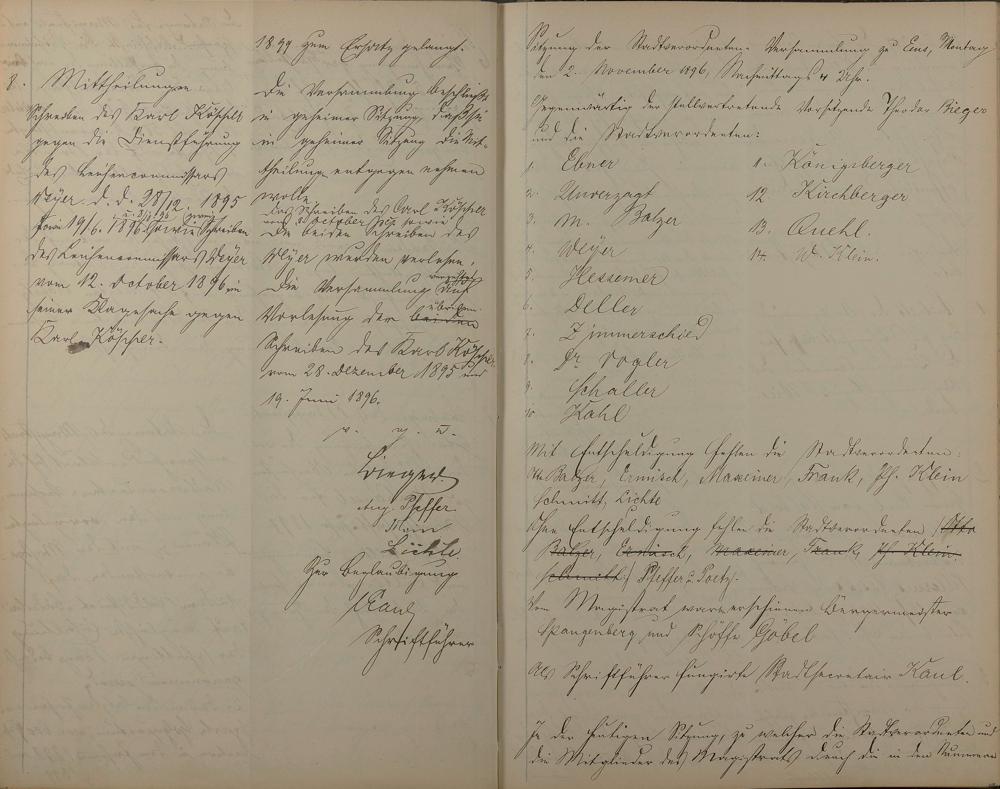 1899 zum Ersatz gelangt.
8. Mittheilungen.
Schreiben des Karl Köscher
gegen die Dienstführung
des Leichencommissars
Weyer d. d. 28/12. 1895
19/6. 1896 sowie Schreiben
des Leichencommissars Weyer
vom 12. October 1896 in
seiner Klagesache gegen
Karl Köscher.
Die Versammlung beschließt
in geheimer Sitzung,
in geheimer Sitzung die Mit-
theilung entgegen nehmen
wolle.
Das Schreiben des Carl Köscher
October
Die beiden Schreiben des
Weyer werden verlesen.
Die Versammlung verzichtet auf
Vorlesung der beiden übrigen
Schreiben des Karl Köscher
vom 28. Dezember 1895 und
19. Juni 1896.
v. g. u.
Rieger
Aug. Pfeffer
Klein
Lichte
Zur Beglaubigung
Kaul
Schriftführer
Sitzung der Stadtverordneten-Versammlung zu Ems, Montag
den 2. November 1896, Nachmittags 4 Uhr.
Gegenwärtig der stellvertretende Vorsitzende Theodor Rieger
und die Stadtverordneten:
1. Ebner
2. Unverzagt
3. M. Balzer
4. Weyer
5. Hessemer
6. Deller
7. Zimmerschied
8. Dr Vogler
9. Schaller
10. Kahl
11. Königsberger
12 Kirchberger
13. Quehl.
14. W. Klein.
Mit Entschuldigung fehlen die Stadtverordneten:
Otto Balzer, Ermisch, Maxeiner, Frank, Ph. Klein
Schmitt, Lichte
Ohne Entschuldigung fehlen die Stadtverordneten (Otto
Balzer, Ermisch, Maxeiner, Frank, Ph. Klein.
Schmitt) Pfeffer u. Goetz.
Vom Magistrat waren erschienen Bürgermeister
Spangenberg und Schöffe Göbel
Als Schriftführer fungirte Stadtsecretair Kaul.
In der heutigen Sitzung, zu welcher die Stadtverordneten und
die Mitglieder des Magistrats durch die in den Nummern